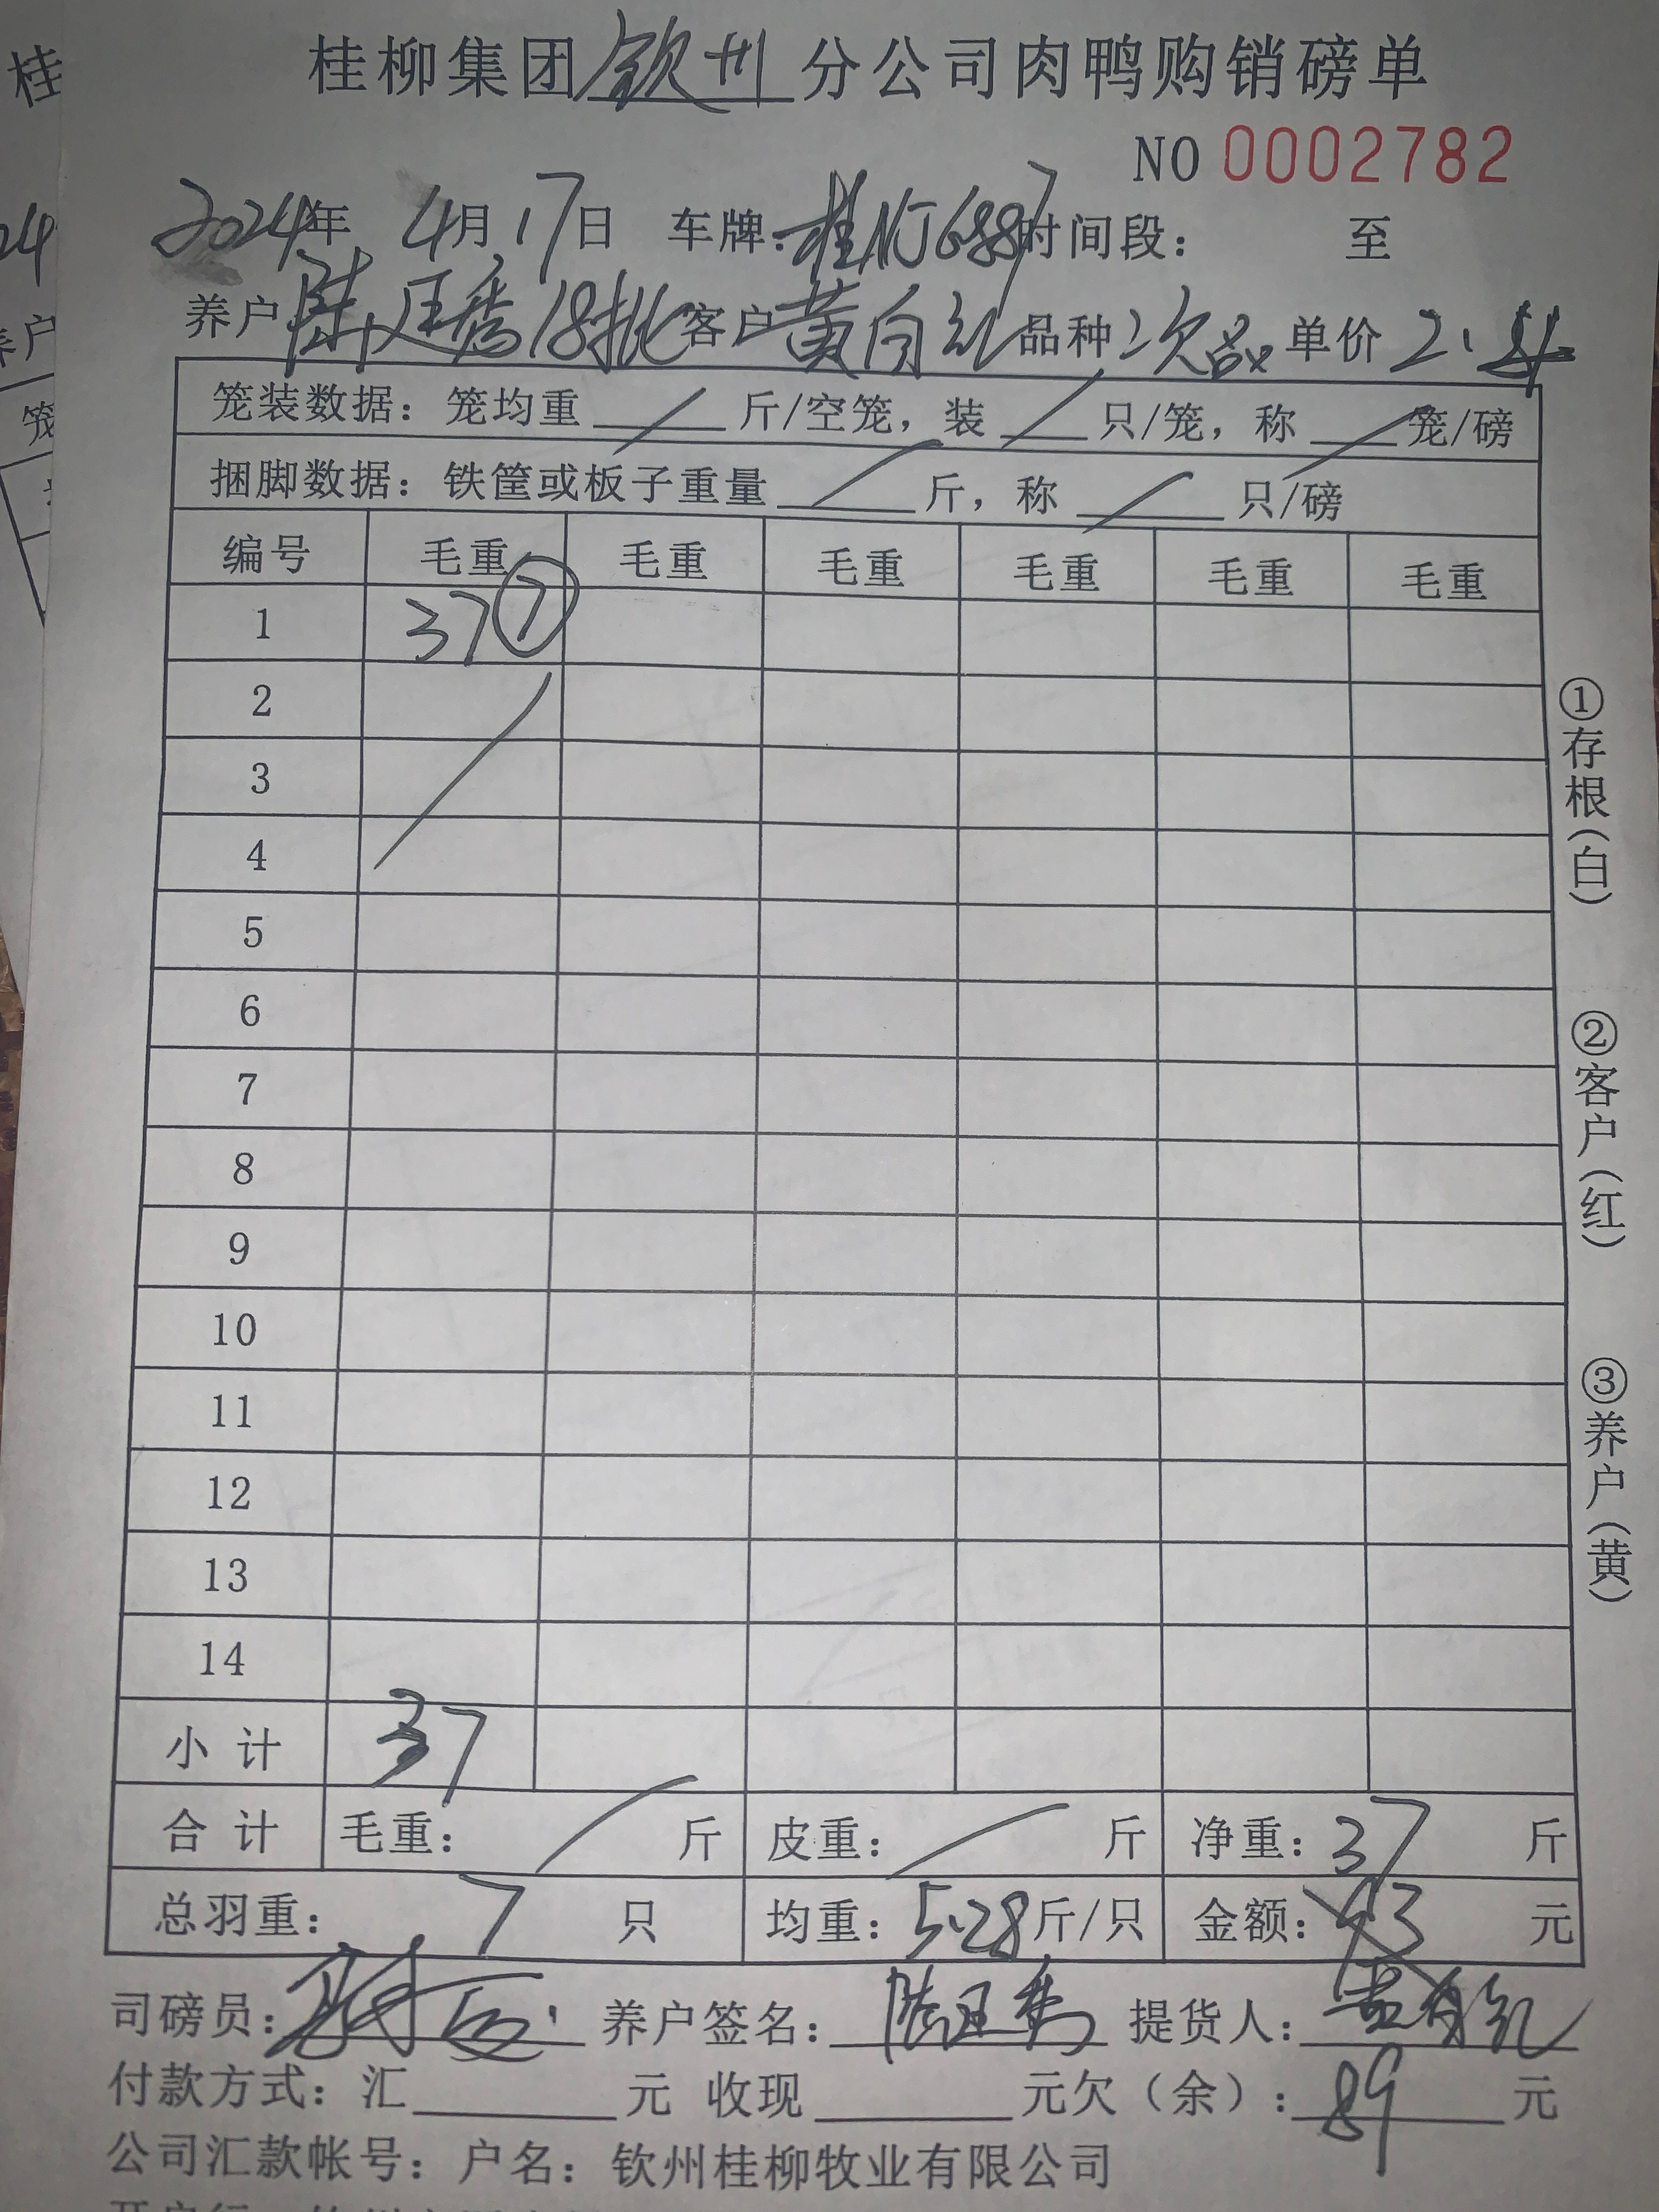 桂柳集团钦州分公司肉鸭购销磅单
NO 0002782
2024年 4月17日 车牌: 桂 6887 时间段: 至
养户 18批 客户 黄 红 品种 次品 单价 2.
笼装数据: 笼均重 / 斤/空笼, 装 / 只/笼, 称 / 笼/磅
捆脚数据: 铁筐或板子重量 / 斤, 称 / 只/磅
编号 毛重 毛重 毛重 毛重 毛重 毛重
1 37 ⑦
2
3
4
5
6
7
8
9
10
11
12
13
14
小计 37
合计 毛重: / 斤 皮重: / 斤 净重: 37 斤
总羽重: 7 只 均重: 5.28 斤/只 金额: 元
司磅员: 养户签名: 提货人:
付款方式: 汇 元 收现 元欠(余): 89 元
公司汇款帐号: 户名: 钦州桂柳牧业有限公司
①存根(白)
②客户(红)
③养户(黄)